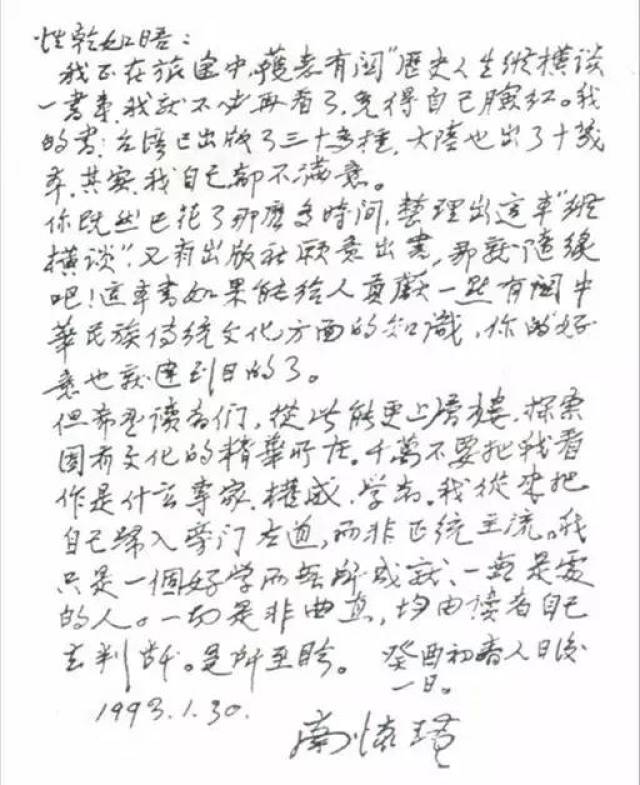 性乾如晤：
我正在旅途中，獲悉有関"歷史人生縱橫談
一書事，我就不必再看了，免得自己臉紅。我
的書，台湾已出版了三十多種，大陸也出了十幾
本，其实，我自己都不滿意。
你既然已花了那麼多時间，整理出这本"縱
橫談"，又有出版社願意出書，那就隨緣
吧！这本書如果能给人貢獻一點有関中
華民族传统文化方面的知識，你的好
意也就達到目的了。
但希望读者们，從此能更上層樓，探索
固有文化的精華所在。千萬不要把我看
作是什么專家、權威、学者。我從来把
自己歸入旁门左道，而非正统主流。我
只是一個好学而無所成就、一無是處
的人。一切是非曲直，均由读者自己
去判断。是所至盼。 癸酉初春人日後
一日。
1993.1.30.
南怀瑾